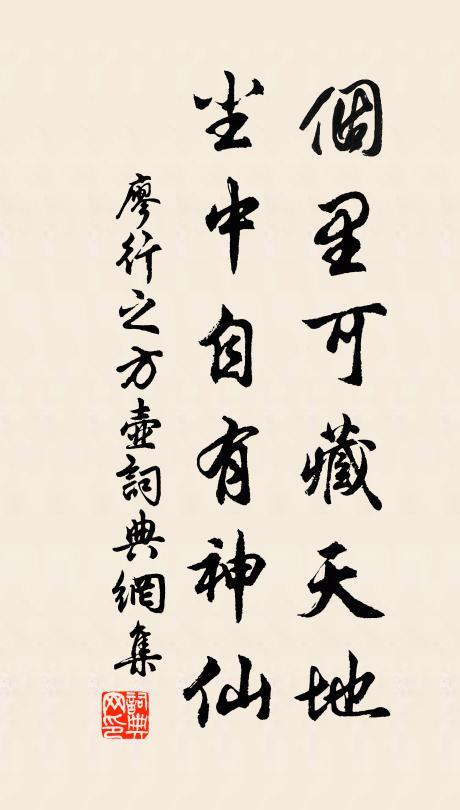 個里可藏天地
坐中自有神仙
廖行之方壺詞典網集
詞典网印